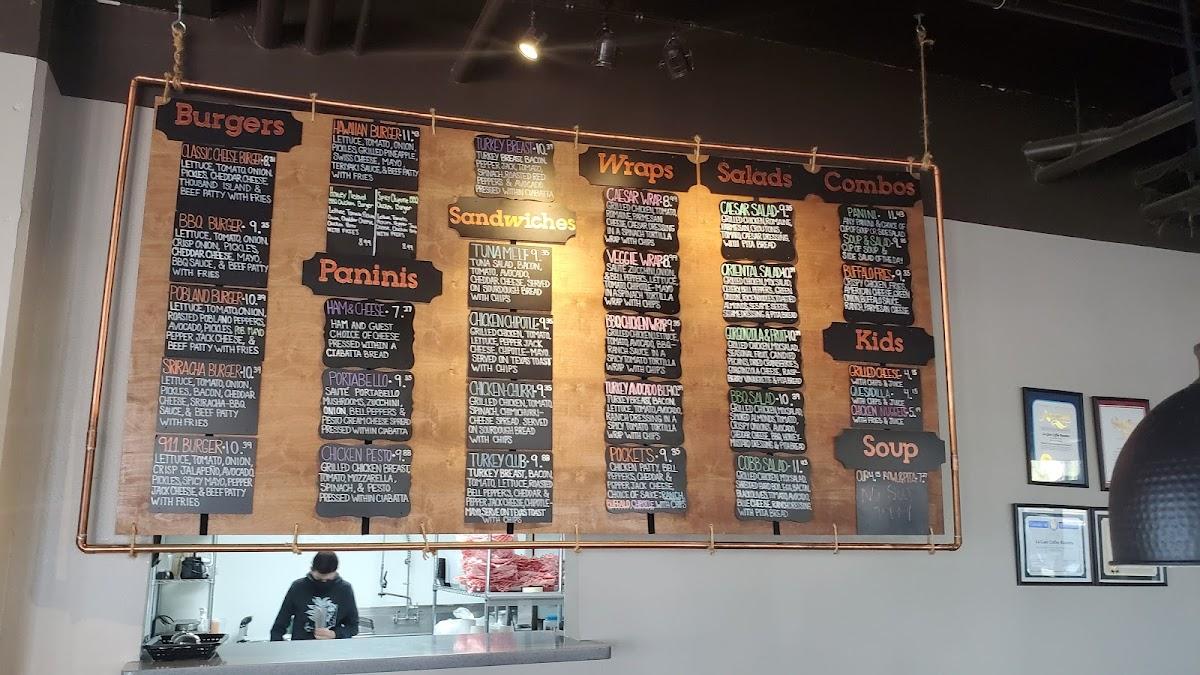 Burgers
CLASSIC CHEESE BURGER-8.
LETTUCE, TOMATO, ONION,
PICKLES, CHEDDAR CHEESE,
THOUSAND ISLAND &
BEEF PATTY WITH FRIES
BBQ BURGER-9.
LETTUCE, TOMATO, ONION,
CRISP ONION, PICKLES,
CHEDDAR CHEESE, MAYO,
BBQ SAUCE, & BEEF PATTY
WITH FRIES
POBLANO BURGER-10.39
LETTUCE, TOMATO, ONION,
ROASTED POBLANO PEPPERS,
AVOCADO, PICKLES, MAYO
PEPPER JACK CHEESE, &
BEEF PATTY WITH FRIES
SRIRACHA BURGER-10.39
LETTUCE, TOMATO, ONION,
PICKLES, BACON, CHEDDAR
CHEESE, SRIRACHA-BBQ
SAUCE, & BEEF PATTY
WITH FRIES
911 BURGER-10.39
LETTUCE, TOMATO, ONION,
CRISP JALAPEÑO, AVOCADO,
PICKLES, SPICY MAYO, PEPPER
JACK CHEESE, & BEEF PATTY
WITH FRIES
HAWAIIAN BURGER-11.
LETTUCE, TOMATO, ONION,
PICKLES, GRILLED PINEAPPLE,
SWISS CHEESE, MAYO,
TERIYAKI SAUCE, & BEEF PATTY
WITH FRIES
8.99
8.99
Paninis
HAM & CHEESE-7.
HAM AND GUEST
CHOICE OF CHEESE
PRESSED WITHIN A
CIABATTA BREAD
PORTABELLO-9.35
SAUTÉ PORTABELLO
MUSHROOMS, ZUCCHINI,
ONION, BELL PEPPERS &
PESTO CREAM CHEESE SPREAD
PRESSED WITHIN CIABATTA
CHICKEN PESTO-9.88
GRILLED CHICKEN BREAST,
TOMATO, MOZZARELLA,
SPINACH, & PESTO
PRESSED WITHIN CIABATTA
TURKEY BREAST-10.39
TURKEY BREAST, BACON,
PEPPER JACK, TOMATO,
SPINACH, ROASTED RED
PEPPERS & AVOCADO
PRESSED WITHIN CIABATTA
Sandwiches
TUNA MELT-9.35
TUNA SALAD, BACON,
TOMATO, AVOCADO,
CHEDDAR CHEESE, SERVED
ON SOURDOUGH BREAD
WITH CHIPS
CHICKEN CHIPOTLE-9.35
GRILLED CHICKEN, TOMATO,
LETTUCE, PEPPER JACK
CHEESE, CHIPOTLE-MAYO,
SERVED ON TEXAS TOAST
WITH CHIPS
CHICKEN CHURRI-9.35
GRILLED CHICKEN, TOMATO,
SPINACH, CHIMICHURRI-
CHEESE SPREAD, SERVED
ON SOURDOUGH BREAD
WITH CHIPS
TURKEY CLUB-9.88
TURKEY BREAST, BACON,
TOMATO, LETTUCE, ROASTED
BELL PEPPERS, CHEDDAR &
PEPPER JACK CHEESE, CHIPOTLE-
MAYO, SERVE ON TEXAS TOAST
WITH CHIPS
Wraps
CAESAR WRAP-8.
GRILLED CHICKEN, TOMATO,
ROMAINE, PARMESAN
CHEESE, CAESAR DRESSING
IN A SPINACH TORTILLA
WRAP WITH CHIPS
VEGGIE WRAP-8.
SAUTÉ ZUCCHINI, ONION
& BELL PEPPERS, LETTUCE,
TOMATO, CHIPOTLE-MAYO
IN A SPINACH TORTILLA
WRAP WITH CHIPS
BBQ CHICKEN WRAP-9.35
GRILLED CHICKEN, LETTUCE,
TOMATO, AVOCADO, BBQ-
RANCH SAUCE IN A
SPICY TOMATO TORTILLA
WRAP WITH CHIPS
TURKEY AVOCADO BLT-10.
TURKEY BREAST, BACON,
LETTUCE, TOMATO, AVOCADO,
RANCH DRESSING IN A
SPICY TOMATO TORTILLA
WRAP WITH CHIPS
POCKETS-9.35
CHICKEN PATTY, BELL
PEPPERS, CHEDDAR &
PEPPER JACK CHEESE,
CHOICE OF SAUCE: RANCH,
BUFFALO, CHIPOTLE
WITH CHIPS
Salads
CAESAR SALAD-9.35
GRILLED CHICKEN, ROMAINE,
PARMESAN, CROUTONS,
TOMATO, CAESAR DRESSING,
WITH PITA BREAD
ORIENTAL SALAD-10.
GRILLED CHICKEN, MIX SALAD,
GORGONZOLA & FRUIT-10.
GRILLED CHICKEN, MIX SALAD,
SEASONAL FRUIT, CANDIED
PECANS, DRIED CRANBERRIES,
GORGONZOLA CHEESE, RASP-
BERRY VINAIGRETTE & PITA BREAD
BBQ SALAD-10.39
GRILLED CHICKEN, MIX SALAD,
SMOKED ALMONDS, TOMATO,
CRISP ONIONS, AVOCADO,
CHEDDAR CHEESE, BBQ, HONEY-
MUSTARD DRESSING & PITA BREAD
COBB SALAD-11.43
GRILLED CHICKEN, MIX SALAD,
WITH PITA BREAD
Combos
PANINI-11.43
ANY PANINI & CHOICE OF
CUP OF SOUP OR SIDE SALAD
SOUP & SALAD-9.
CUP OF SOUP &
SIDE SALAD OF THE DAY
BUFFALO FRIES-9.35
CRISPY CHICKEN, FRIES,
RANCH, PARMESAN CHEESE
Kids
GRILLED CHEESE-4.15
WITH CHIPS & JUICE
QUESADILLA-4.15
WITH CHIPS & JUICE
CHICKEN NUGGETS-5.
WITH FRIES & JUICE
Soup